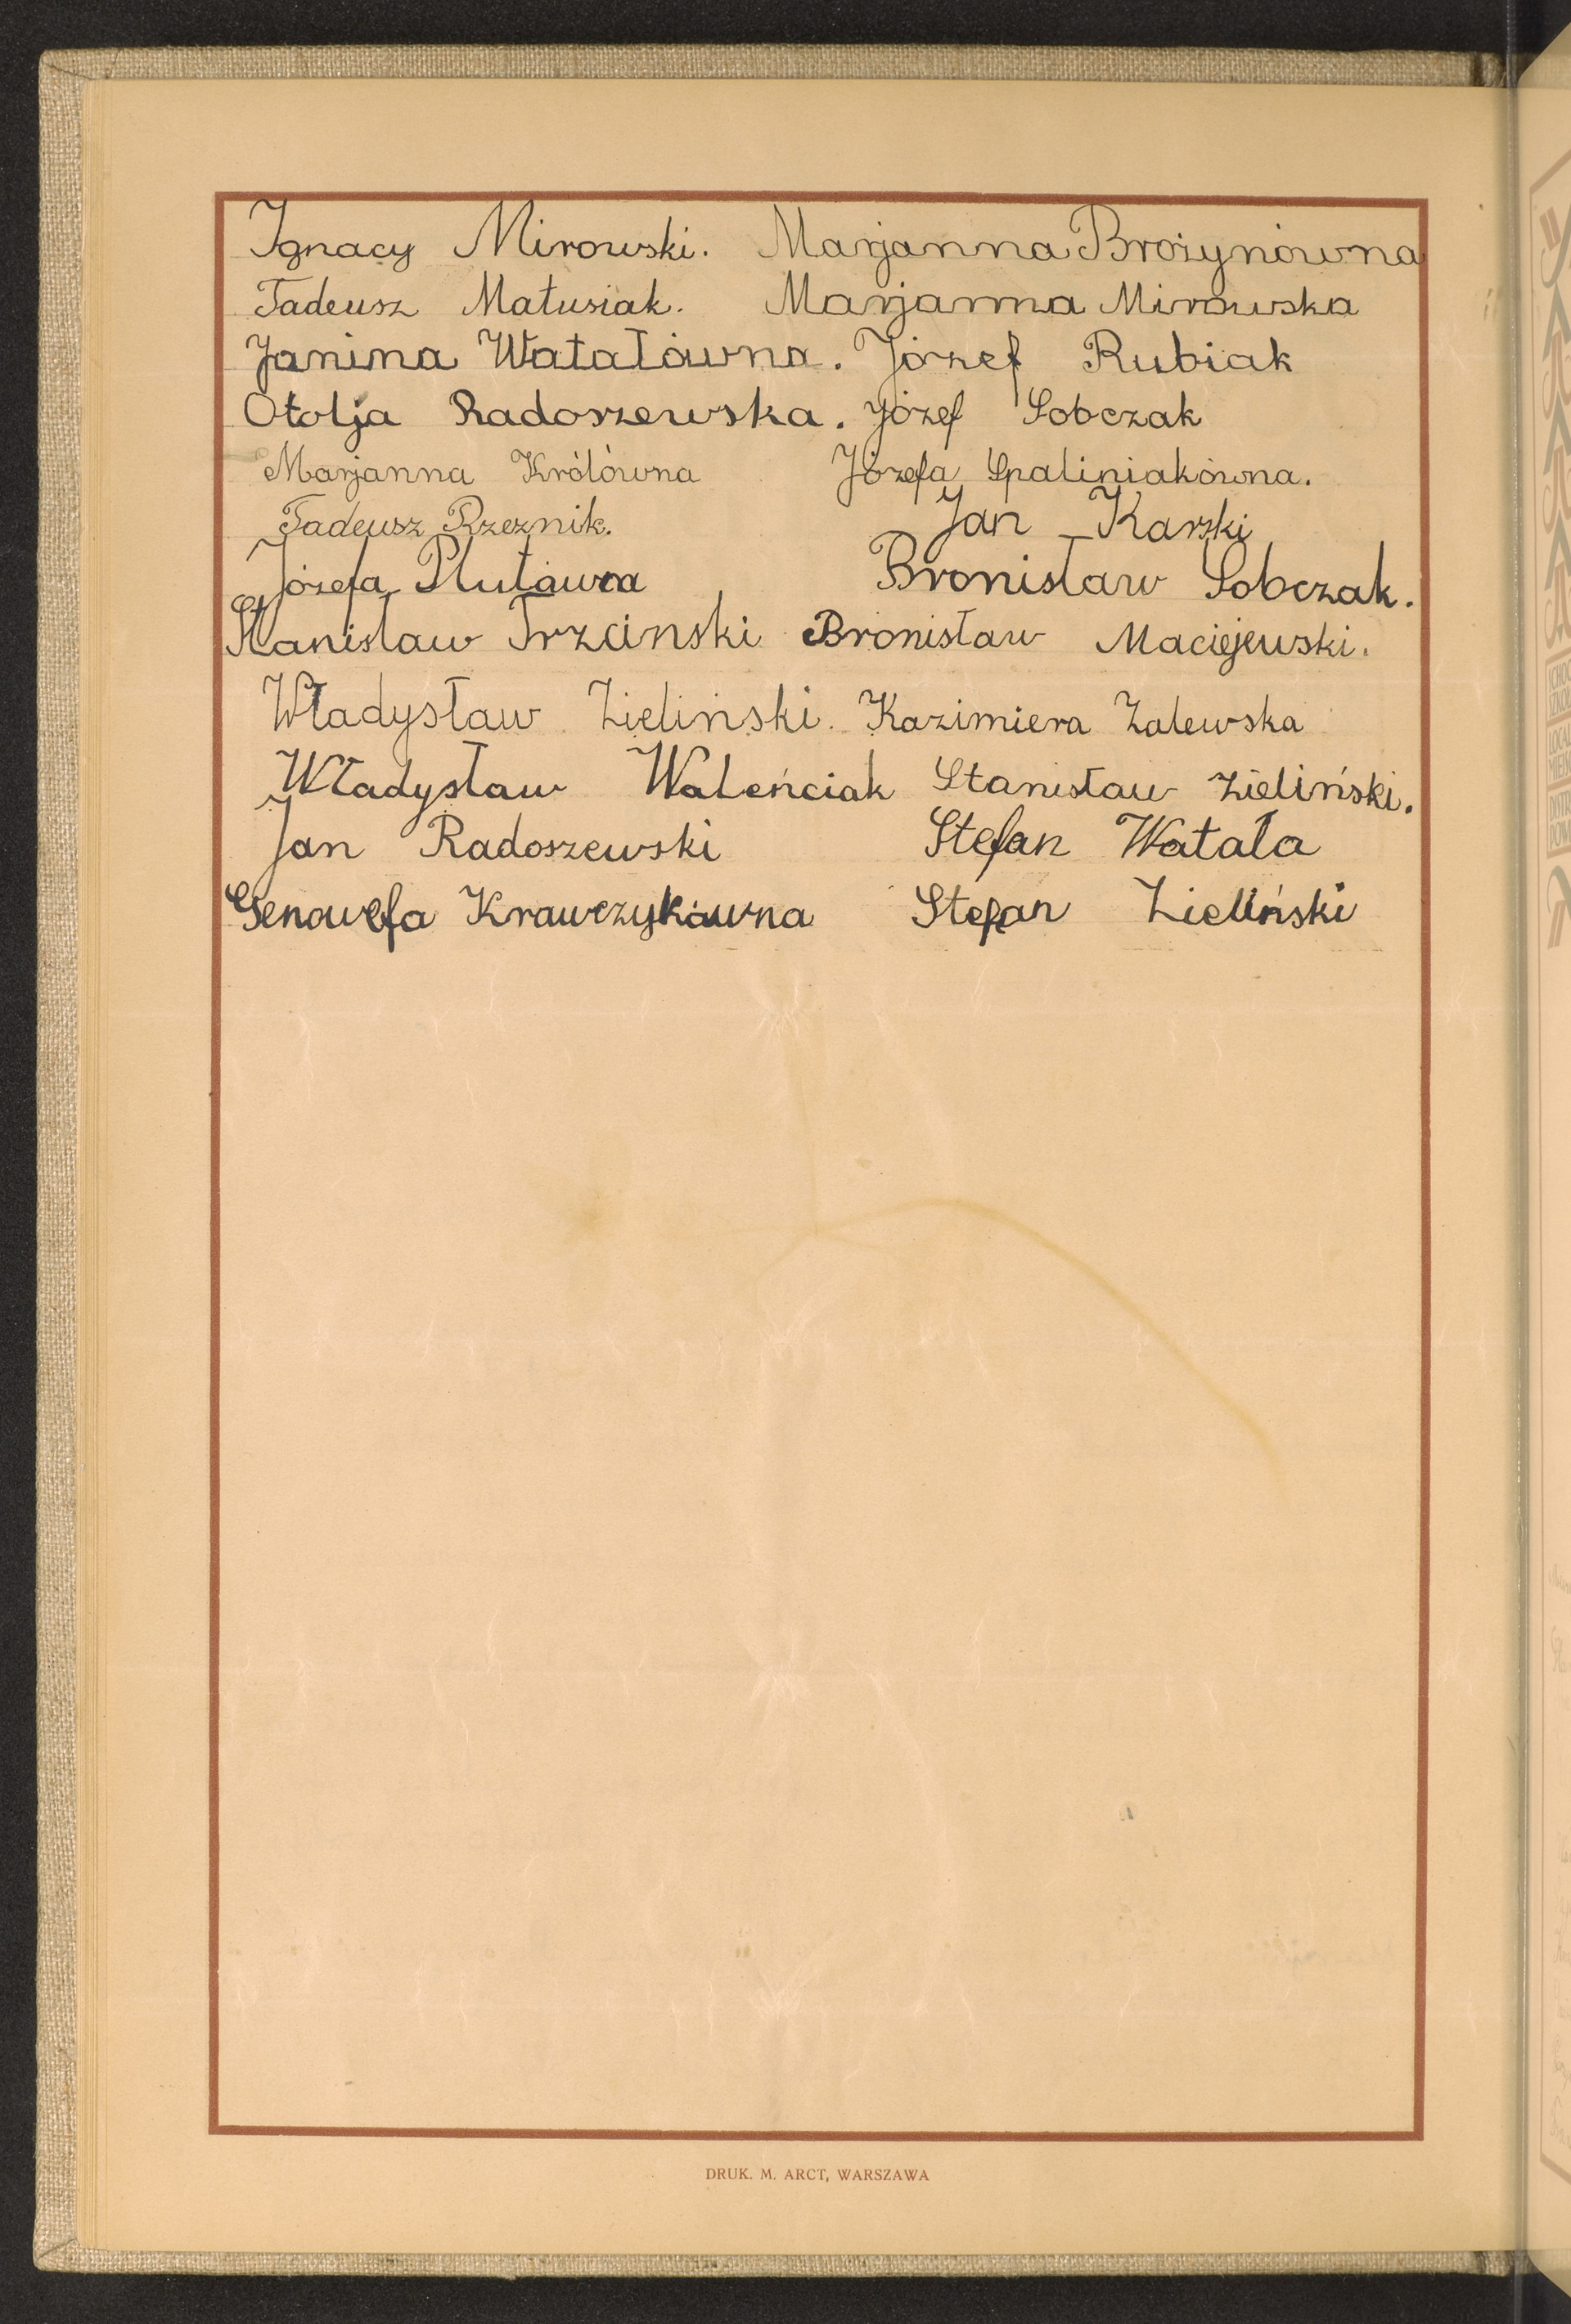 Ignacy Mirowski. Marjanna Brożynówna
Tadeusz Matusiak. Marjanna Mirowska
Janina Watałówna. Józef Rubiak
Otolja Radoszewska. Józef Sobczak
Marjanna Królówna Józefa Spaliniakówna.
Tadeusz Rzeznik. Jan Karski
Józefa Plutówna Bronisław Sobczak.
Stanisław Trzcinski Bronisław Maciejewski.
Władysław Zieliński. Kazimiera Zalewska
Władysław Waleńciak Stanisław Zieliński.
Jan Radoszewski Stefan Watała
Genowefa Krawczykówna Stefan Zieliński
DRUK. M. ARCT, WARSZAWA